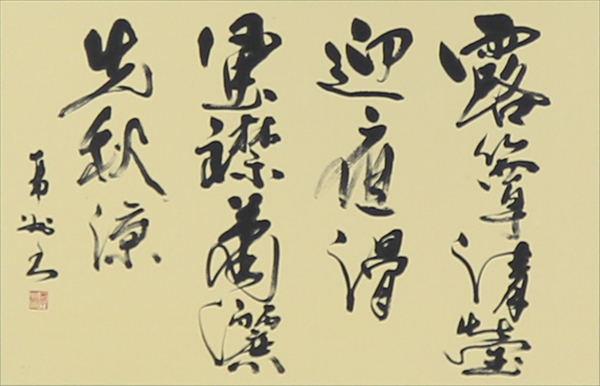 露簟清瑩
迎夜滑
風襟蕭灑
先秋涼